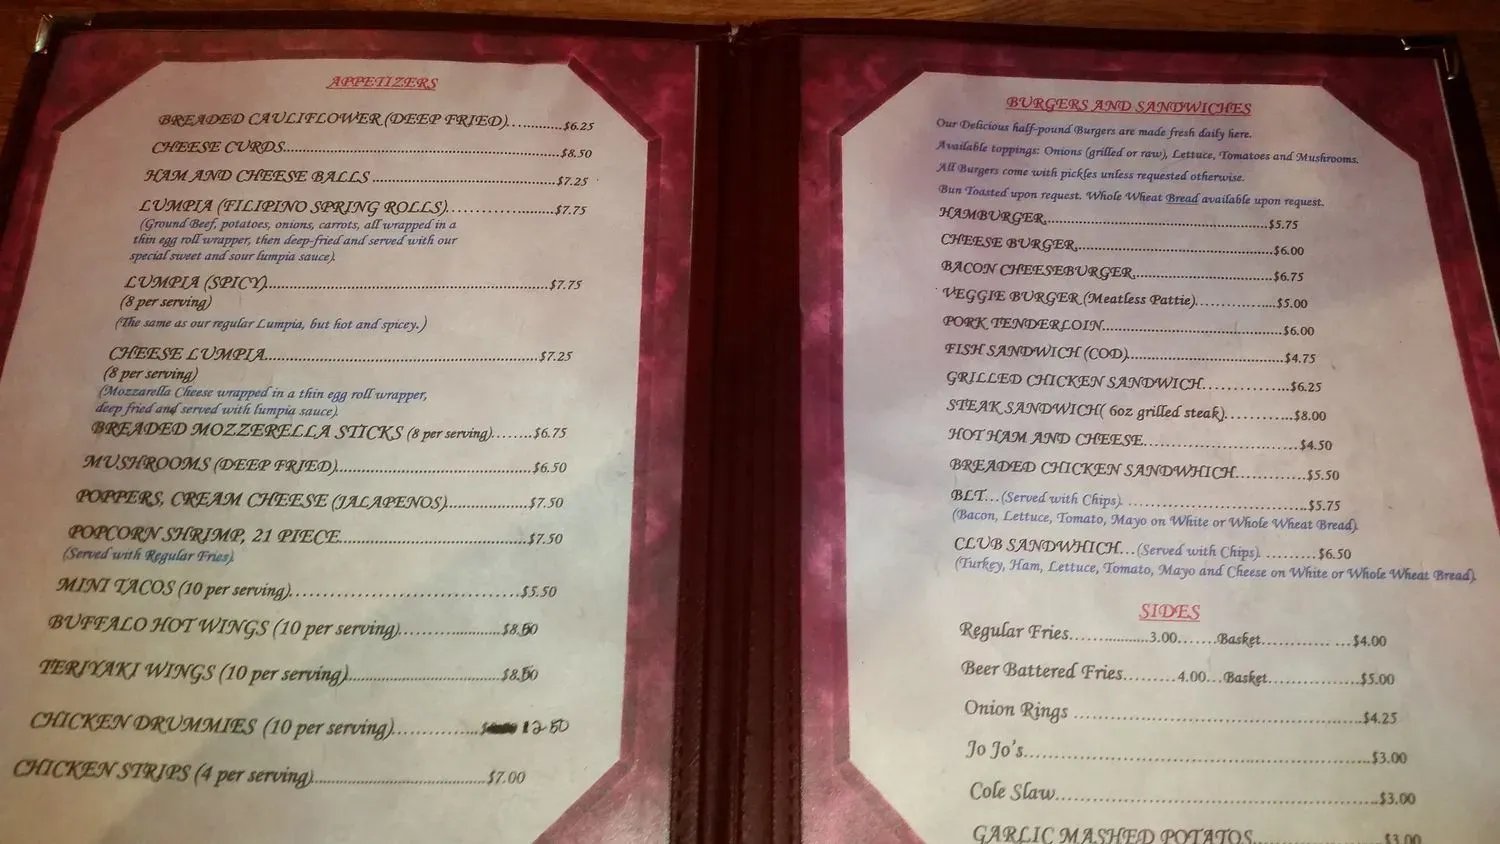 APPETIZERS
BREADED CAULIFLOWER (DEEP FRIED)..............$6.25
CHEESE CURDS..............$8.50
HAM AND CHEESE BALLS..............$7.25
LUMPIA (FILIPINO SPRING ROLLS)..............$7.75
(Ground Beef, potatoes, onions, carrots, all wrapped in a
thin egg roll wrapper, then deep-fried and served with our
special sweet and sour lumpia sauce).
LUMPIA (SPICY)..............$7.75
(8 per serving)
(The same as our regular Lumpia, but hot and spicey.)
CHEESE LUMPIA..............$7.25
(8 per serving)
(Mozzarella Cheese wrapped in a thin egg roll wrapper,
deep fried and served with lumpia sauce).
BREADED MOZZERELLA STICKS (8 per serving).......$6.75
MUSHROOMS (DEEP FRIED)..............$6.50
POPPERS, CREAM CHEESE (JALAPENOS)..............$7.50
POPCORN SHRIMP, 21 PIECE..............$7.50
(Served with Regular Fries).
MINI TACOS (10 per serving)..............$5.50
BUFFALO HOT WINGS (10 per serving)..............$8.50
TERIYAKI WINGS (10 per serving)..............$8.50
CHICKEN DRUMMIES (10 per serving)..............$ 12.50
CHICKEN STRIPS (4 per serving)..............$7.00
BURGERS AND SANDWICHES
Our Delicious half-pound Burgers are made fresh daily here.
Available toppings: Onions (grilled or raw), Lettuce, Tomatoes and Mushrooms.
All Burgers come with pickles unless requested otherwise.
Bun Toasted upon request. Whole Wheat Bread available upon request.
HAMBURGER..............$5.75
CHEESE BURGER..............$6.00
BACON CHEESEBURGER..............$6.75
VEGGIE BURGER (Meatless Pattie)..............$5.00
PORK TENDERLOIN..............$6.00
FISH SANDWICH (COD)..............$4.75
GRILLED CHICKEN SANDWICH..............$6.25
STEAK SANDWICH( 6oz grilled steak)..............$8.00
HOT HAM AND CHEESE..............$4.50
BREADED CHICKEN SANDWHICH..............$5.50
BLT...(Served with Chips). ..............$5.75
(Bacon, Lettuce, Tomato, Mayo on White or Whole Wheat Bread).
CLUB SANDWHICH...(Served with Chips). .........$6.50
(Turkey, Ham, Lettuce, Tomato, Mayo and Cheese on White or Whole Wheat Bread).
SIDES
Regular Fries..............3.00.......Basket..............$4.00
Beer Battered Fries.........4.00...Basket..............$5.00
Onion Rings ..............$4.25
Jo Jo's..............$3.00
Cole Slaw..............$3.00
GARLIC MASHED POTATOS..............$3.00